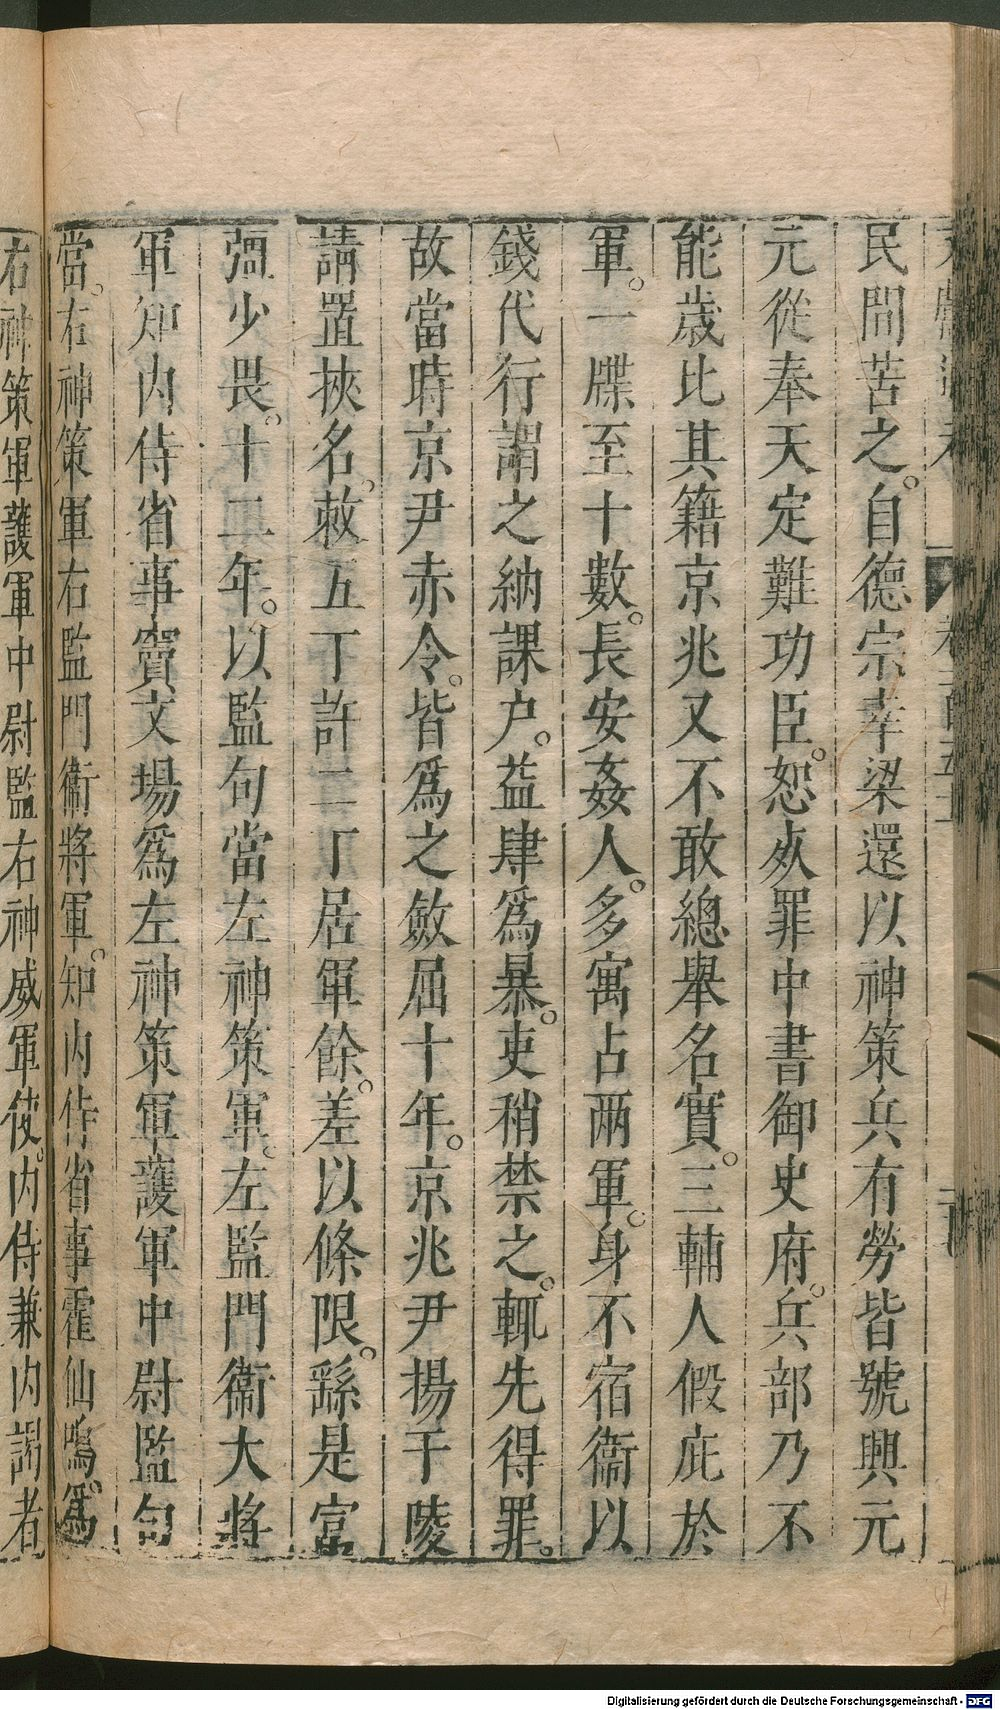 民間苦之。自德宗幸梁還以神策兵有勞皆號興元
元從奉天定難功臣。恕死罪中書御史府。兵部乃不
能歲比其籍京兆又不敢總舉名實。三輔人假庇於
軍。一牒至十數。長安姦人。多寓占兩軍。身不宿衛以
錢代行謂之納課户。益肆爲暴。吏稍禁之。輒先得罪。
故當時京尹赤令。皆爲之斂屈十年。京兆尹揚于陵
請置挾名。敕五丁許二丁居軍餘。差以條限。繇是富
彊少畏。十二年。以監句當左神策軍。左監門衞大將
軍知内侍省事竇文場爲左神策軍護軍中尉監句
當。右神策軍右監門衞將軍。知内侍省事霍仙鳴。爲
右神策軍護軍中尉監右神威軍使。内侍兼内謁者
Digitalisierung gefördert durch die Deutsche Forschungsgemeinschaft - DFG